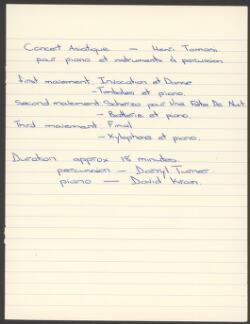 Concert Asiatique — Henri Tomasi
pour piano et instruments à percussion
First movement: Invocation et Danse
- Timbales et piano.
Second movement: Scherzo pour Une Fête De Nuit
- Batterie et piano.
Third movement: Final
- Xylophone et piano.
Duration approx 18 minutes.
percussion — Darryl Turner
piano — David Kram.